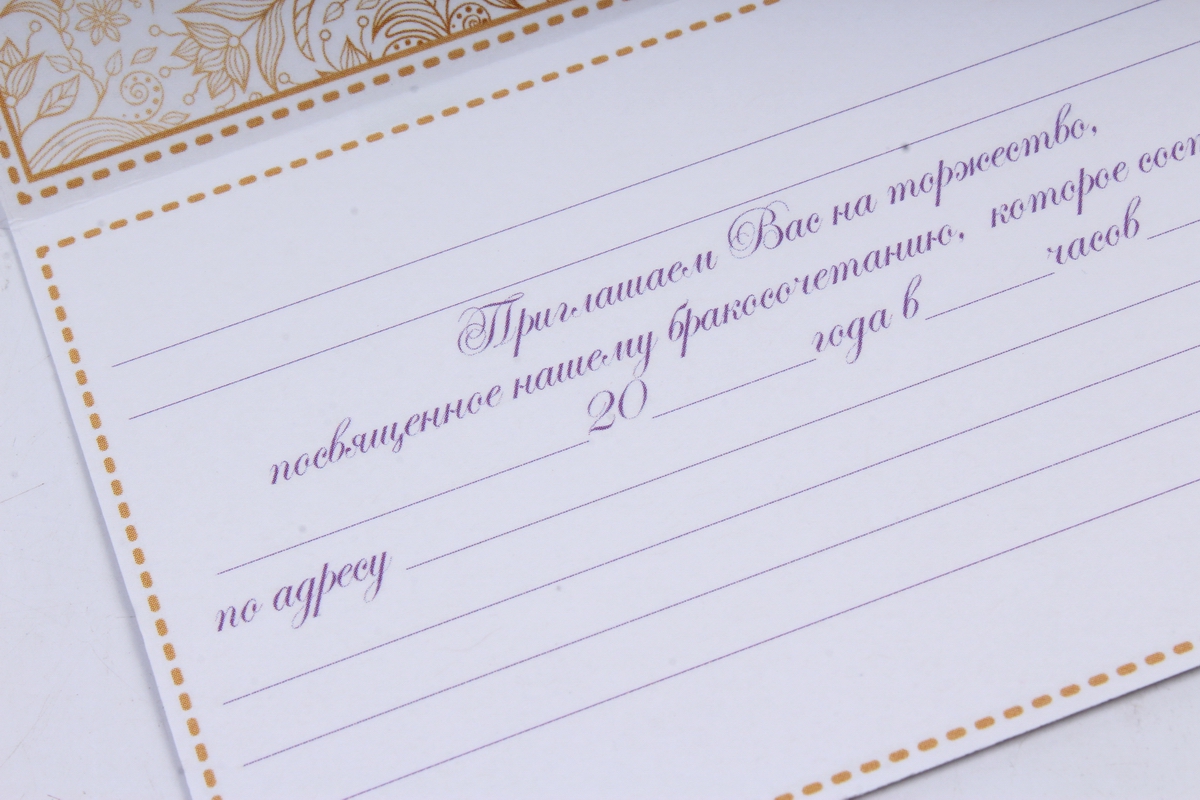 Приглашаем Вас на торжество,
посвященное нашему бракосочетанию, которое
20 года в часов
по адресу